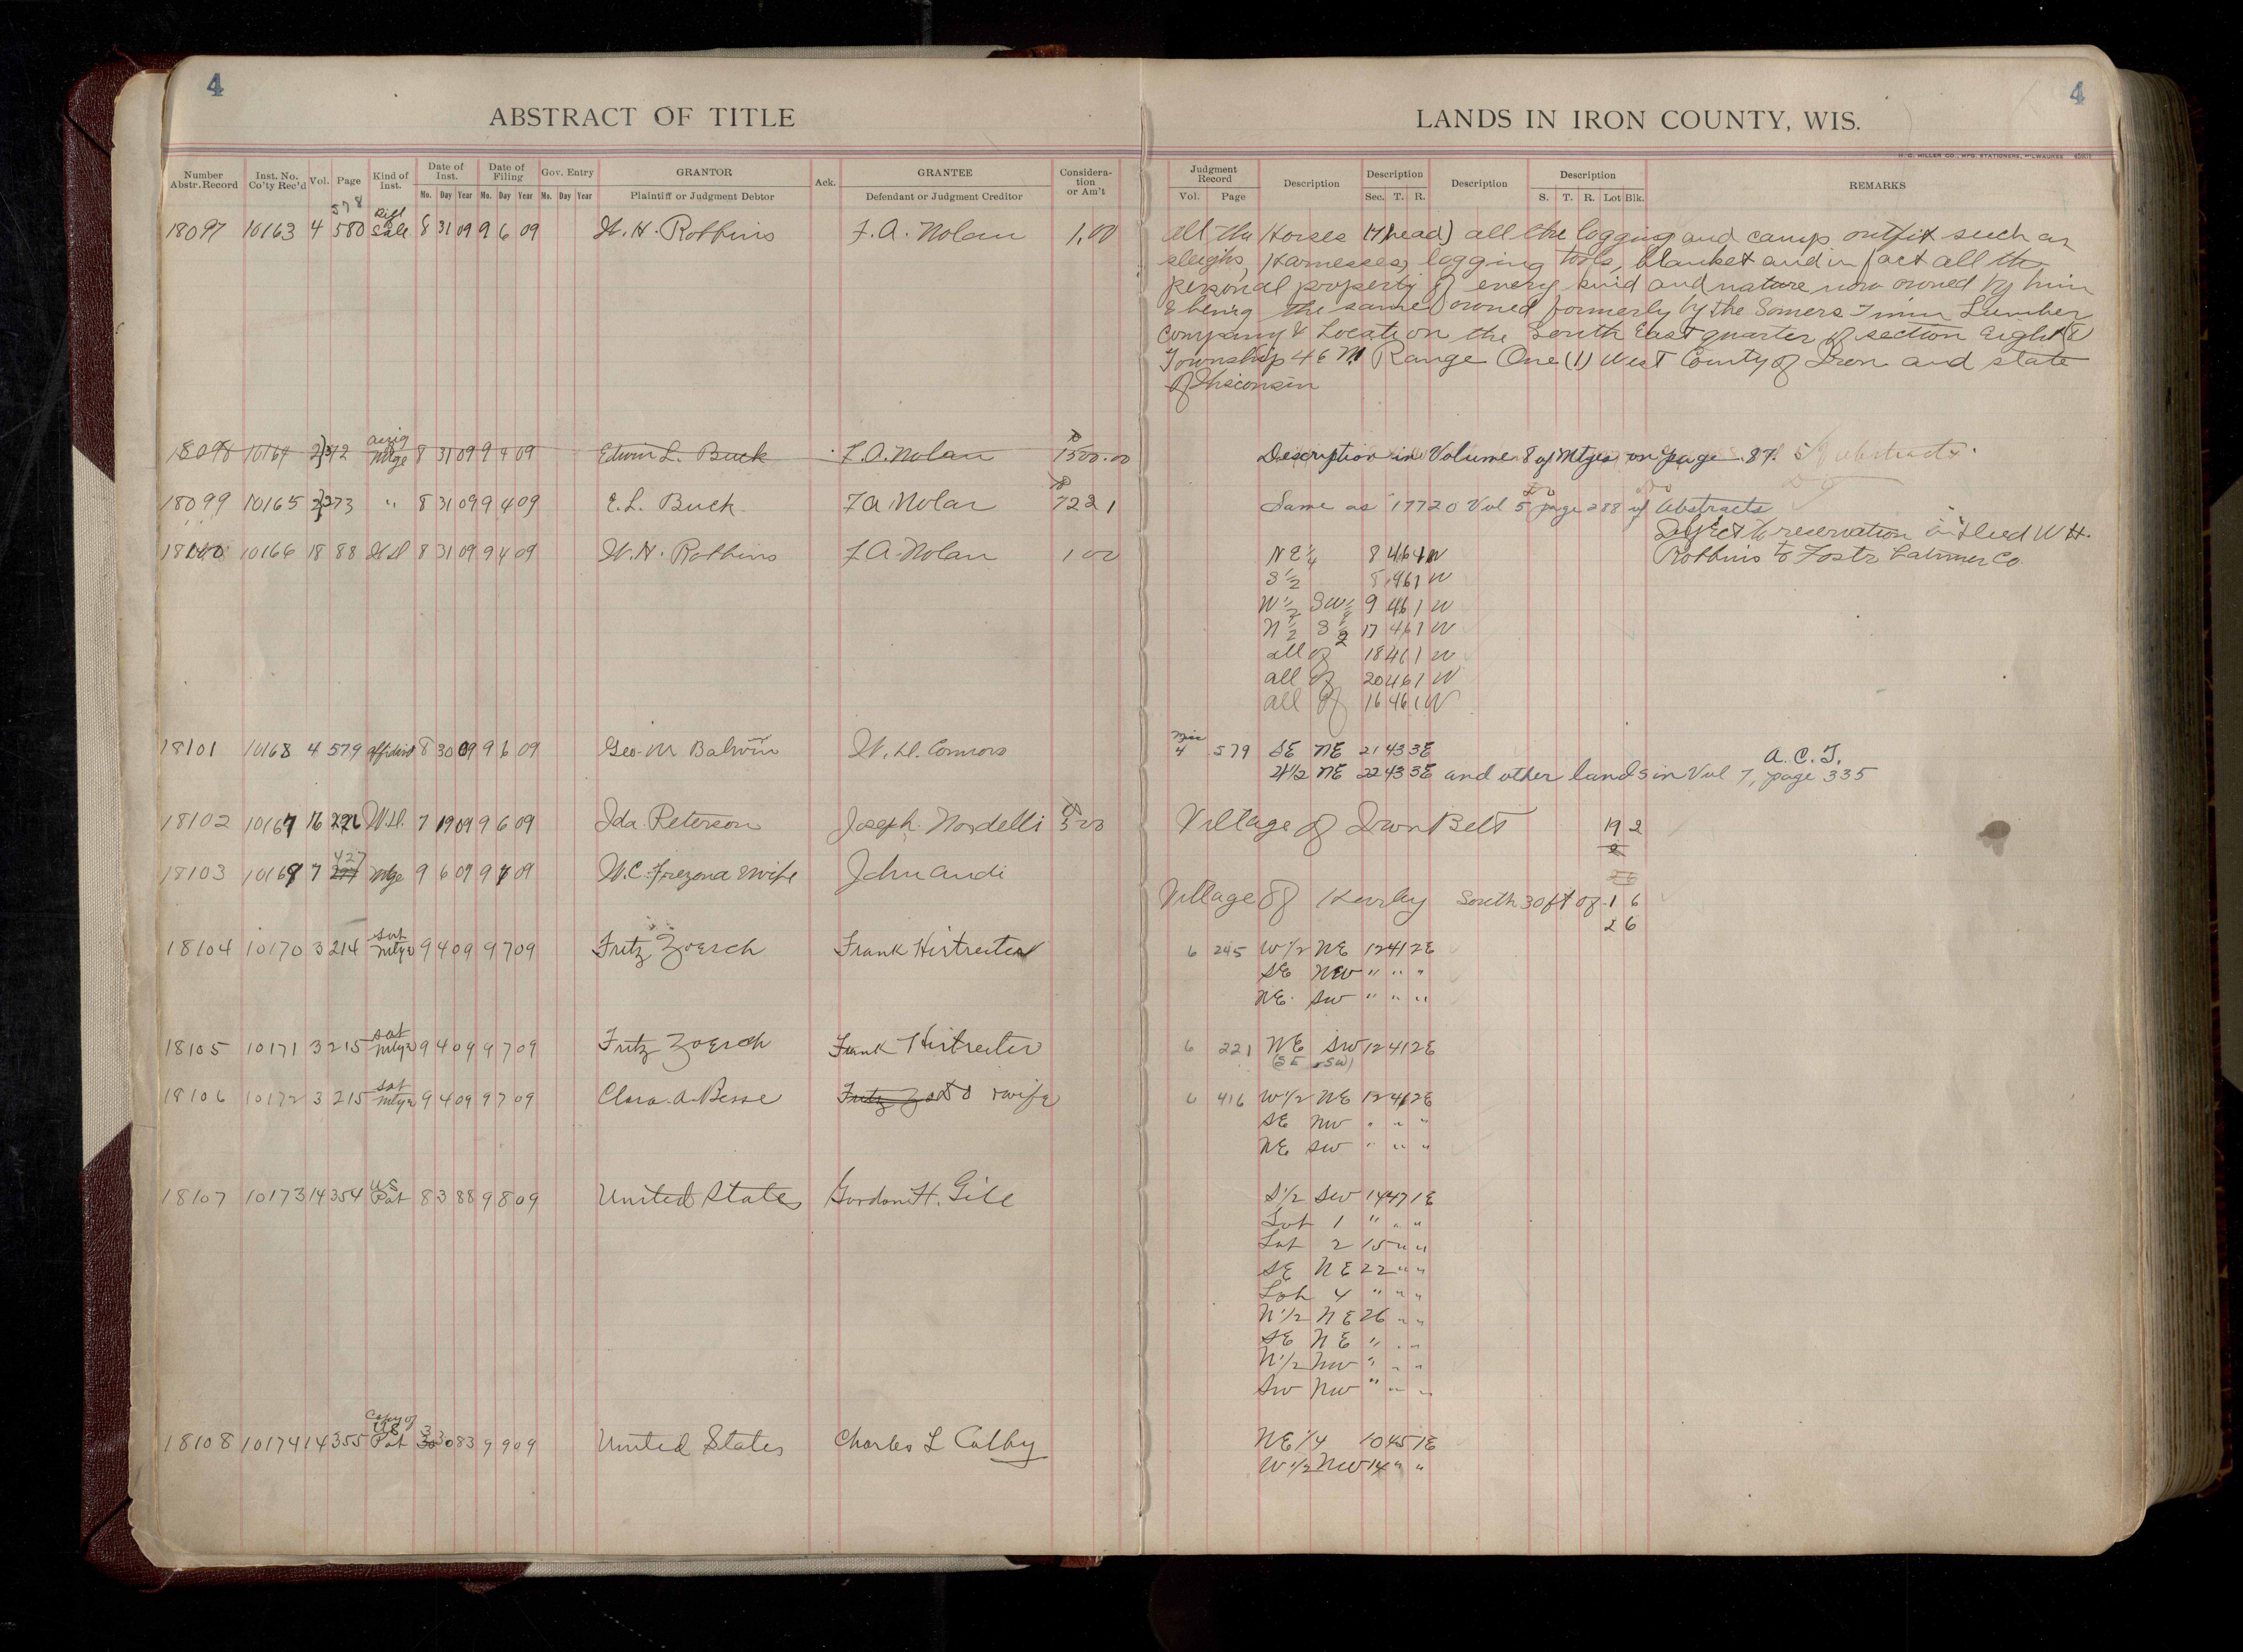 4
4
ABSTRACT OF TITLE
LANDS IN IRON COUNTY, WIS.
H. C. MILLER CO., MFG. STATIONERS, MILWAUKEE
Number Abstr. Record Inst. No. Co'ty Rec'd Vol. Page Kind of Inst. Date of Inst. Mo. Day Year Date of Filing Mo. Day Year Gov. Entry Mo. Day Year GRANTOR Plaintiff or Judgment Debtor Ack. GRANTEE Defendant or Judgment Creditor Considera-tion or Am't
Judgment Record Vol. Page Description Description Sec. T. R. Description Description S. T. R. Lot Blk. REMARKS
578
18097 10163 4 580 Bill Sale 8 31 09 9 6 09 W. H. Robbins F. A. Nolan 1.00
all the Horses (7 head) all the logging and camp outfit such as
sleighs, Harnesses, logging tools, blanket and in fact all the
personal property of every kind and nature now owned by him
& being the same owned formerly by the Somers Lumber
Company & Locate on the South East quarter of section Eight (8)
Township 46 N Range One (1) West County of Iron and state
of Wisconsin
18098 10164 2 372 assig mtge 8 31 09 9 4 09 Edwin L. Buck F. A. Nolan 1500.00 Description in Volume 8 of Mtges on page 87. Abstracts.
18099 10165 2 373 " 8 31 09 9 4 09 E. L. Buck F A Nolan 7221 Same as 17720 Vol 5 page 288 of Abstracts
18100 10166 18 88 WD 8 31 09 9 4 09 W. H. Robbins F. A. Nolan 1 00 Subject to reservation in deed W H.
Robbins to Foster Latimer Co.
NE 1/4 8 46 1 W
S 1/2 8 46 1 W
W 1/2 SW 1/4 9 46 1 W
N 1/2 S 1/2 17 46 1 W
all of 18 46 1 W
all of 20 46 1 W
all of 16 46 1 W
18101 10168 4 579 affidavit 8 30 09 9 6 09 Geo. M Balwin W. D. Connors Misc 4 579 SE NE 21 43 3E
A. C. T.
22 43 3E and other lands in Vol 7, page 335
18102 10167 16 W.D. 7 19 09 9 6 09 Ida Peterson Joseph Nordelli 500 Village of Iron Belt 19 2
2
18103 10169 7 427 mtge 9 6 09 9 7 09 W. C. Frezona & wife John andi
Village of Hurley South 30 ft of 1 6
2 6
18104 10170 3 214 Sat mtge 9 4 09 9 7 09 Fritz Zoesch Frank Hirtreiter 6 245 W 1/2 NE 12 41 2E
SE NW " " "
NE SW " " "
18105 10171 3 215 Sat mtge 9 4 09 9 7 09 Fritz Zoesch Frank Hirtreiter 6 221 NE SW 12 41 2E
(SE SW)
18106 10172 3 215 Sat mtge 9 4 09 9 7 09 Clara A. Besse Fritz & wife 6 416 W 1/2 NE 12 41 2E
SE NW " " "
NE SW " " "
18107 10173 14 354 US Pat 8 3 88 9 8 09 United States Gordon H. Gill S 1/2 SW 14 47 1E
Lot 1 " " "
Lot 2 15 " "
SE NE 22 " "
Lot 4 " " "
N 1/2 NE 26 " "
SE NE " " "
N 1/2 NW " " "
SW NW " " "
18108 10174 14 355 Copy of US Pat 3 30 83 9 9 09 United States Charles L Colby NE 1/4 10 45 1E
W 1/2 NW 14 " "